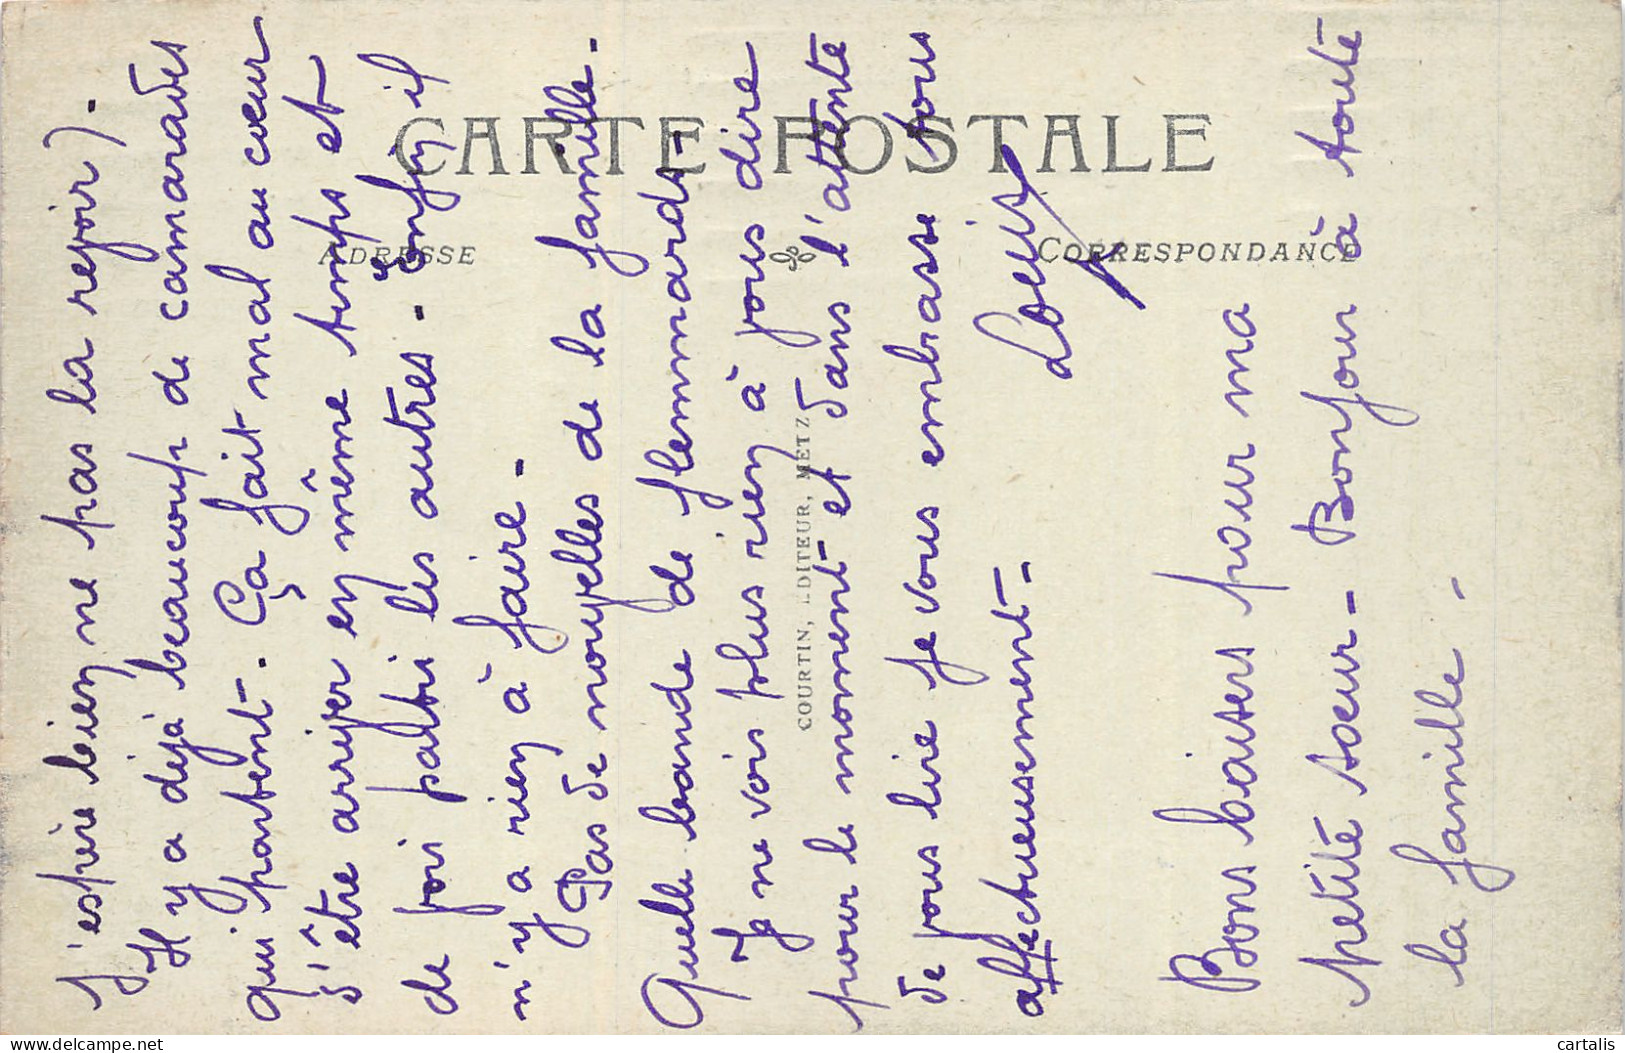 CARTE POSTALE
ADRESSE
CORRESPONDANCE
COURTIN, EDITEUR, METZ
j'espère bien ne pas la revoir).
Il y a déjà beaucoup de camarades
qui partent. Ça fait mal au cœur
s'être arriver en même temps et
de voir partir les autres. Enfin il
n'y a rien à faire.
Pas de nouvelles de la famille.
Quelle bande de flemmards.
Je ne vois plus rien à vous dire
pour le moment et dans l'attente
de vous lire je vous embrasse tous
affectueusement.
Louis
Bons baisers pour ma
petite sœur. Bonjour à toute
la famille.
cartalis